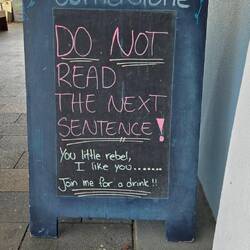 Cornerstone
DO NOT
READ
THE NEXT
SENTENCE!
You little rebel,
I like you.......
Join me for a drink!!